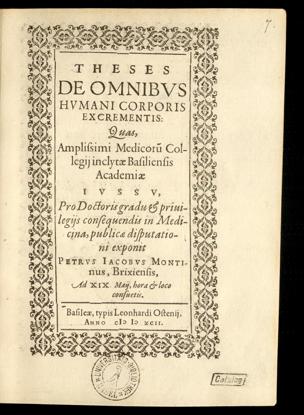 7.
THESES
DE OMNIBVS
HVMANI CORPORIS
EXCREMENTIS:
Quas,
Ampliſſimi Medicorũ Col-
legij inclytæ Baſilienſis
Academiæ
IVSSV,
Pro Doctoris gradu & priui-
legijs conſequendis in Medi-
cina, publicæ diſputatio-
ni exponit
PETRVS IACOBVS MONTI-
nus, Brixienſis,
Ad XIX Maij, hora & loco
conſuetis.
Baſileæ, typis Leonhardi Oſtenij,
ANNO CIↃ IↃ XCII.
Catalog